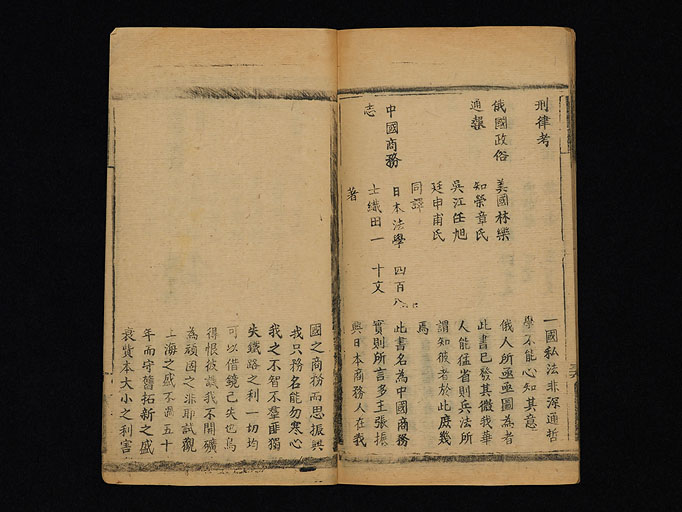 刑律考
俄國政俗
通報
中國商務
志
美國林樂
知榮章氏
吳江任旭
廷申甫氏
同譯
日本法學
士織田一
著
四百八
十文
一國私法非深通哲
學不能心知其意
俄人所亟亟圖為者
此書已發其微我華
人能猛省則兵法所
謂知彼者於此庶幾
焉
此書名為中國商務
實則所言多主張振
興日本商務人在我
國之商務而思振興
我只務名能勿寒心
我之不智不羣匪獨
失鐵路之利一切均
可以借鏡已失也烏
得恨彼譏我不開礦
為頑固之非耶試觀
上海之盛不過五十
年而守舊拓新之盛
衰貲本大小之利害